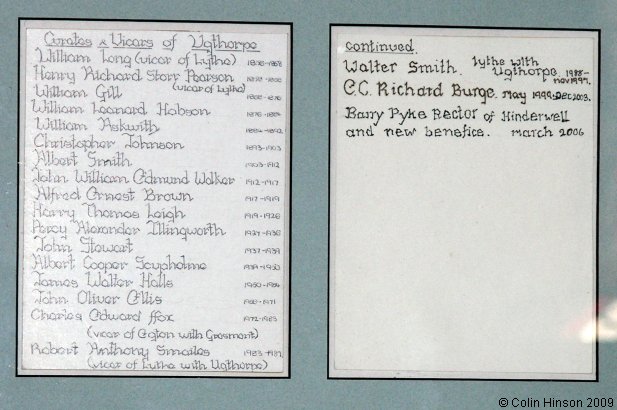 Curates & Vicars of Ugthorpe
William Long (vicar of Lythe)
Henry Richard Storr Pearson
(vicar of Lythe)
William Gill
William Leonard Hobson 1876-1884
William Askwith 1884-1892
Christopher Johnson 1893-1903
Albert Smith 1903-1912
John William Edmund Walker 1912-1917
Alfred Ernest Brown 1917-1919
Harry Thomas Leigh 1919-1926
Percy Alexander Illingworth
John Stewart 1937-1939
Albert Cooper Scupholme 1939-1950
James Walter Halls
John Oliver Ellis
Charles Edward ffox 1972-1983
(vicar of Egton with Grosmont)
Robert Anthony Smailes 1983-1987
(vicar of Lythe with Ugthorpe)
continued.
Walter Smith. Lythe with
Ugthorpe. 1988-
nov 1997.
C.C. Richard Burge. May 1999-Dec 2003.
Barry Pyke Rector of Hinderwell
and new benefice. march 2006
© Colin Hinson 2009